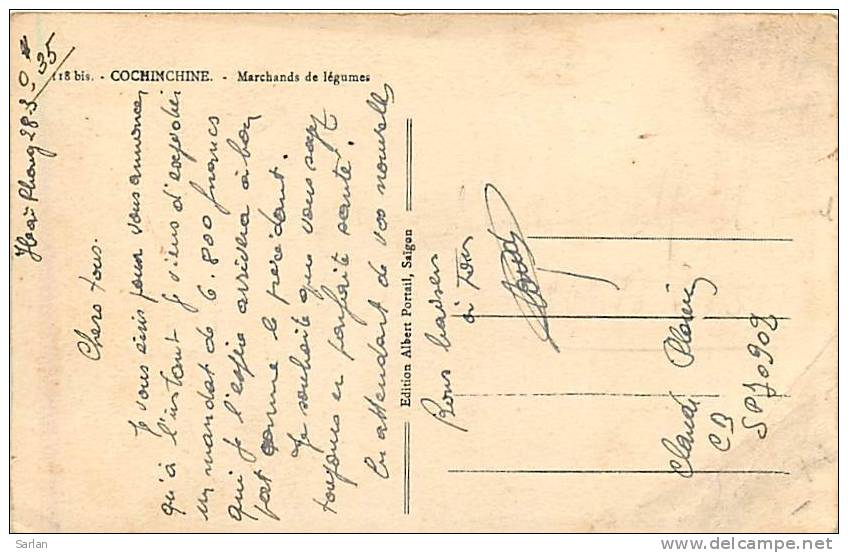 118 bis. - COCHINCHINE. - Marchands de légumes
Chers tous.
Je vous écris pour vous annoncer
qu'à l'instant je viens d'expédier
un mandat de 6.800 francs
qui je l'espère arrivera à bon
port comme le précédent.
Je souhaite que vous soyez
toujours en parfaite santé.
En attendant de vos nouvelles
Bons baisers
à tous
Edition Albert Portail, Saigon
Claude
SP 70902
Sarlan
www.delcampe.net